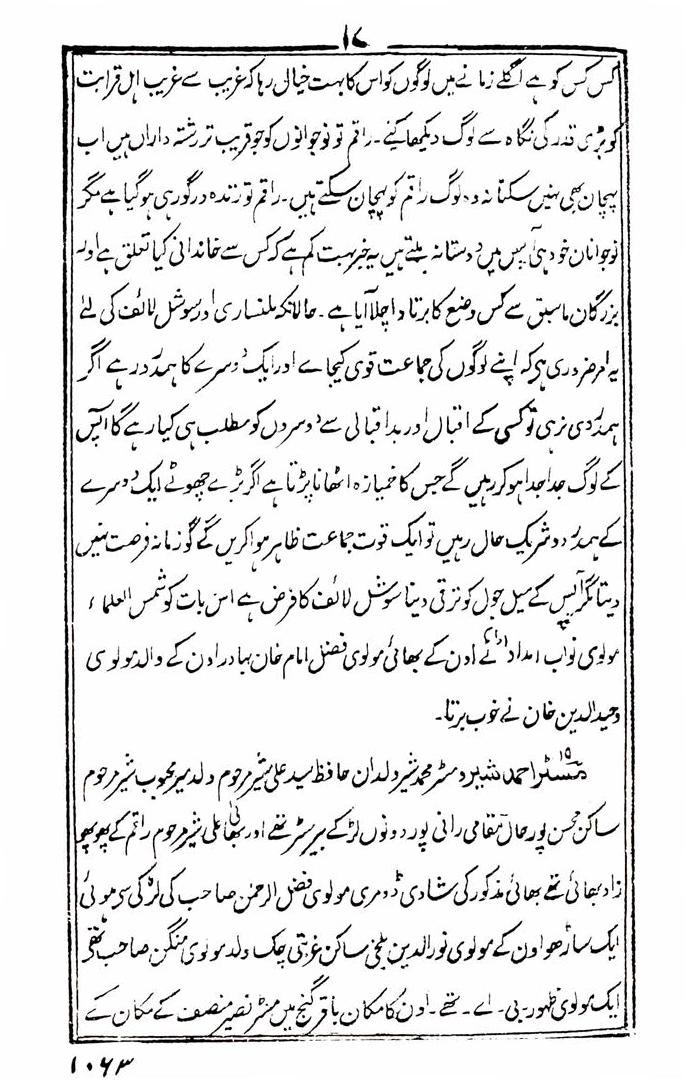 ۱۷
کس کس کو ہے اگلے زمانے میں لوگوں کو اس کا بہت خیالی رہا کہ غریب سے غریب اہل قرابت
کو بڑی قدر کی نگاہ سے لوگ دیکھا کئے۔ راقم تو نوجوانوں کو جو قریب تر رشتہ داراں ہیں اب
پہچان بھی نہیں سکتا نہ وہ لوگ راقم کو پہچان سکتے ہیں۔ راقم تو زندہ درگور ہی ہو گیا ہے مگر
نوجوانان خود ہی آپس میں دوستانہ ملتے ہیں یہ خبر بہت کم ہے کہ کس سے خاندانی کیا تعلق ہے اور
بزرگان ماسبق سے کس وضع کا برتاو اچلا آیا ہے۔ حالانکہ ملنساری اور سوشل لائف کی لئے
یہ امر ضروری ہے کہ اپنے لوگوں کی جماعت قوی کیجاے اور ایک دوسرے کا ہمدرد رہے اگر
ہمدردی نرہی تو کسی کے اقبال اور بداقبالی سے دوسروں کو مطلب ہی کیا رہے گا آپس
کے لوگ جدا جدا ہو کر رہیں گے جس کا خمیازہ اٹھانا پڑتا ہے اگر بڑے چھوٹے ایک دوسرے
کے ہمدرد و شریک حال رہیں تو ایک قوت جماعت ظاہر ہوا کریں گے گو زمانہ فرصت نہیں
دیتا مگر آپس کے میل جول کو ترقی دینا سوشل لائف کا فرض ہے اس بات کو شمس العلماء
مولوی نواب امداد امام نے اون کے بھائی مولوی فضل امام خان بہادر اون کے والد مولوی
وحید الدین خان نے خوب برتا۔
۱۵ مسٹر احمد شیر و مسٹر محمد شیر ولدان حافظ سید علی شیر مرحوم ولد میر محبوب شیر مرحوم
ساکن محسن پور حال مقامی رانی پور دونوں لڑکے بیرسٹر تھے اور بھائی علی شیر مرحوم راقم کے پھوپھو
زاد بھائی تھے بھائی مذکور کی شادی ڈومری مولوی فضل الرحمن صاحب کی لڑکی سے ہوئی
ایک ساڑھو اون کے مولوی نور الدین بلخی ساکن غربتی چک ولد مولوی منگن صاحب تھے
ایک مولوی ظہور۔ بی۔ اے۔ تھے۔ اون کا مکان باقر گنج میں مسٹر نصیر منصف کے مکان کے
۱۰۶۳